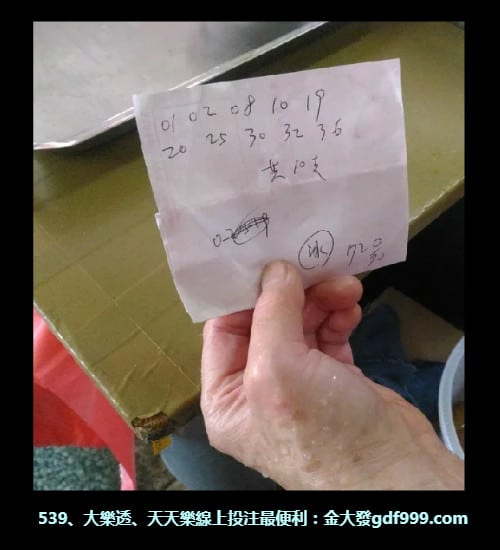 01 02 08 10 19
20 25 30 32 36
共10支
02
冰 720
30
539、大樂透、天天樂線上投注最便利：金大發gdf999.com